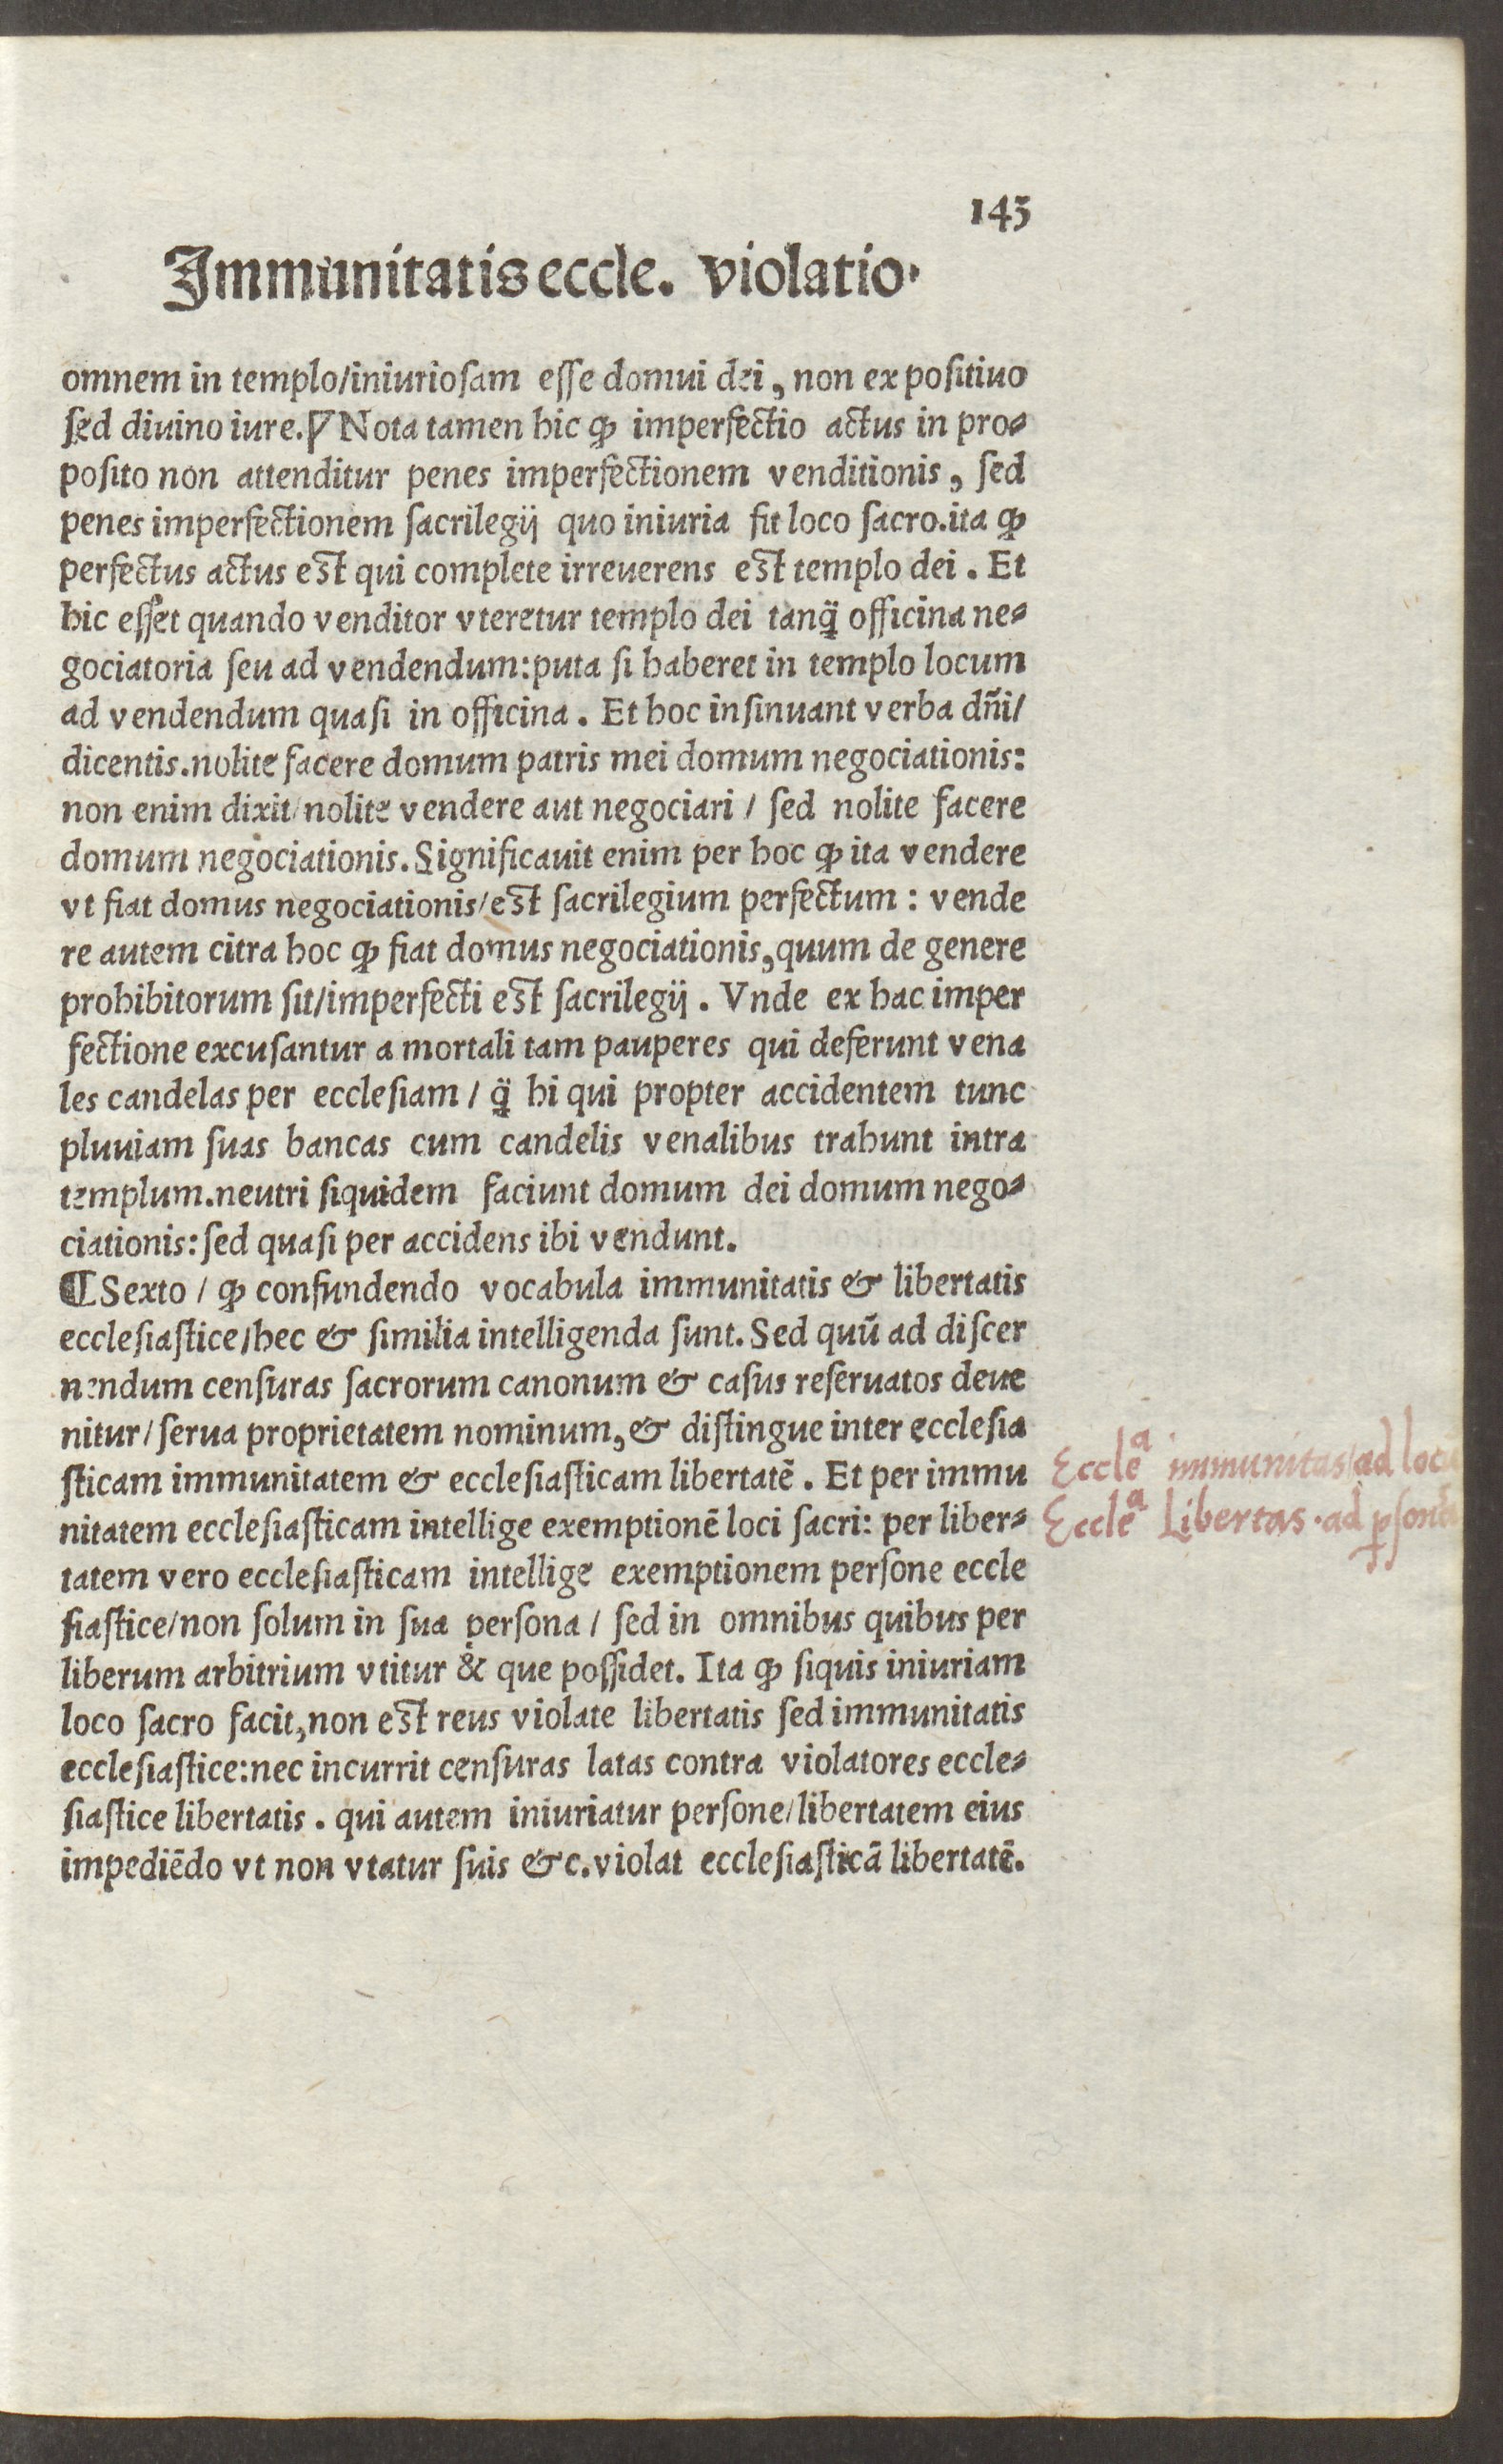 145
Immunitatis eccle. violatio.
omnem in templo/iniuriosam esse domui dei, non ex positiuo
sed diuino iure. ꝩ Nota tamen hic ꝙ imperfectio actus in pro⸗
posito non attenditur penes imperfectionem venditionis, sed
penes imperfectionem sacrilegij quo iniuria fit loco sacro.ita ꝙ
perfectus actus est qui complete irreuerens est templo dei. Et
hic esset quando venditor vteretur templo dei tanq̈ officina ne⸗
gociatoria seu ad vendendum:puta si haberet in templo locum
ad vendendum quasi in officina. Et hoc insinuant verba dñi/
dicentis.nolite facere domum patris mei domum negociationis:
non enim dixit/nolite vendere aut negociari / sed nolite facere
domum negociationis. Significauit enim per hoc ꝙ ita vendere
vt fiat domus negociationis/est sacrilegium perfectum: vende
re autem citra hoc ꝙ fiat domus negociationis,quum de genere
prohibitorum sit/imperfecti est sacrilegij. Vnde ex hac imper
fectione excusantur a mortali tam pauperes qui deferunt vena
les candelas per ecclesiam / q̈ hi qui propter accidentem tunc
pluuiam suas bancas cum candelis venalibus trahunt intra
templum.neutri siquidem faciunt domum dei domum nego⸗
ciationis:sed quasi per accidens ibi vendunt.
¶ Sexto / ꝙ confundendo vocabula immunitatis & libertatis
ecclesiastice/hec & similia intelligenda sunt. Sed quū ad discer
nendum censuras sacrorum canonum & casus reseruatos deue
nitur/serua proprietatem nominum, & distingue inter ecclesia
sticam immunitatem & ecclesiasticam libertatē. Et per immu
nitatem ecclesiasticam intellige exemptionē loci sacri: per liber⸗
tatem vero ecclesiasticam intellige exemptionem persone eccle
siastice/non solum in sua persona / sed in omnibus quibus per
liberum arbitrium vtitur & que possidet. Ita ꝙ siquis iniuriam
loco sacro facit,non est reus violate libertatis sed immunitatis
ecclesiastice:nec incurrit censuras latas contra violatores eccle⸗
siastice libertatis. qui autem iniuriatur persone/libertatem eius
impediēdo vt non vtatur suis &c.violat ecclesiasticā libertatē.
Eccleᵃ immunitas/ad
Eccleᵃ Libertas. ad